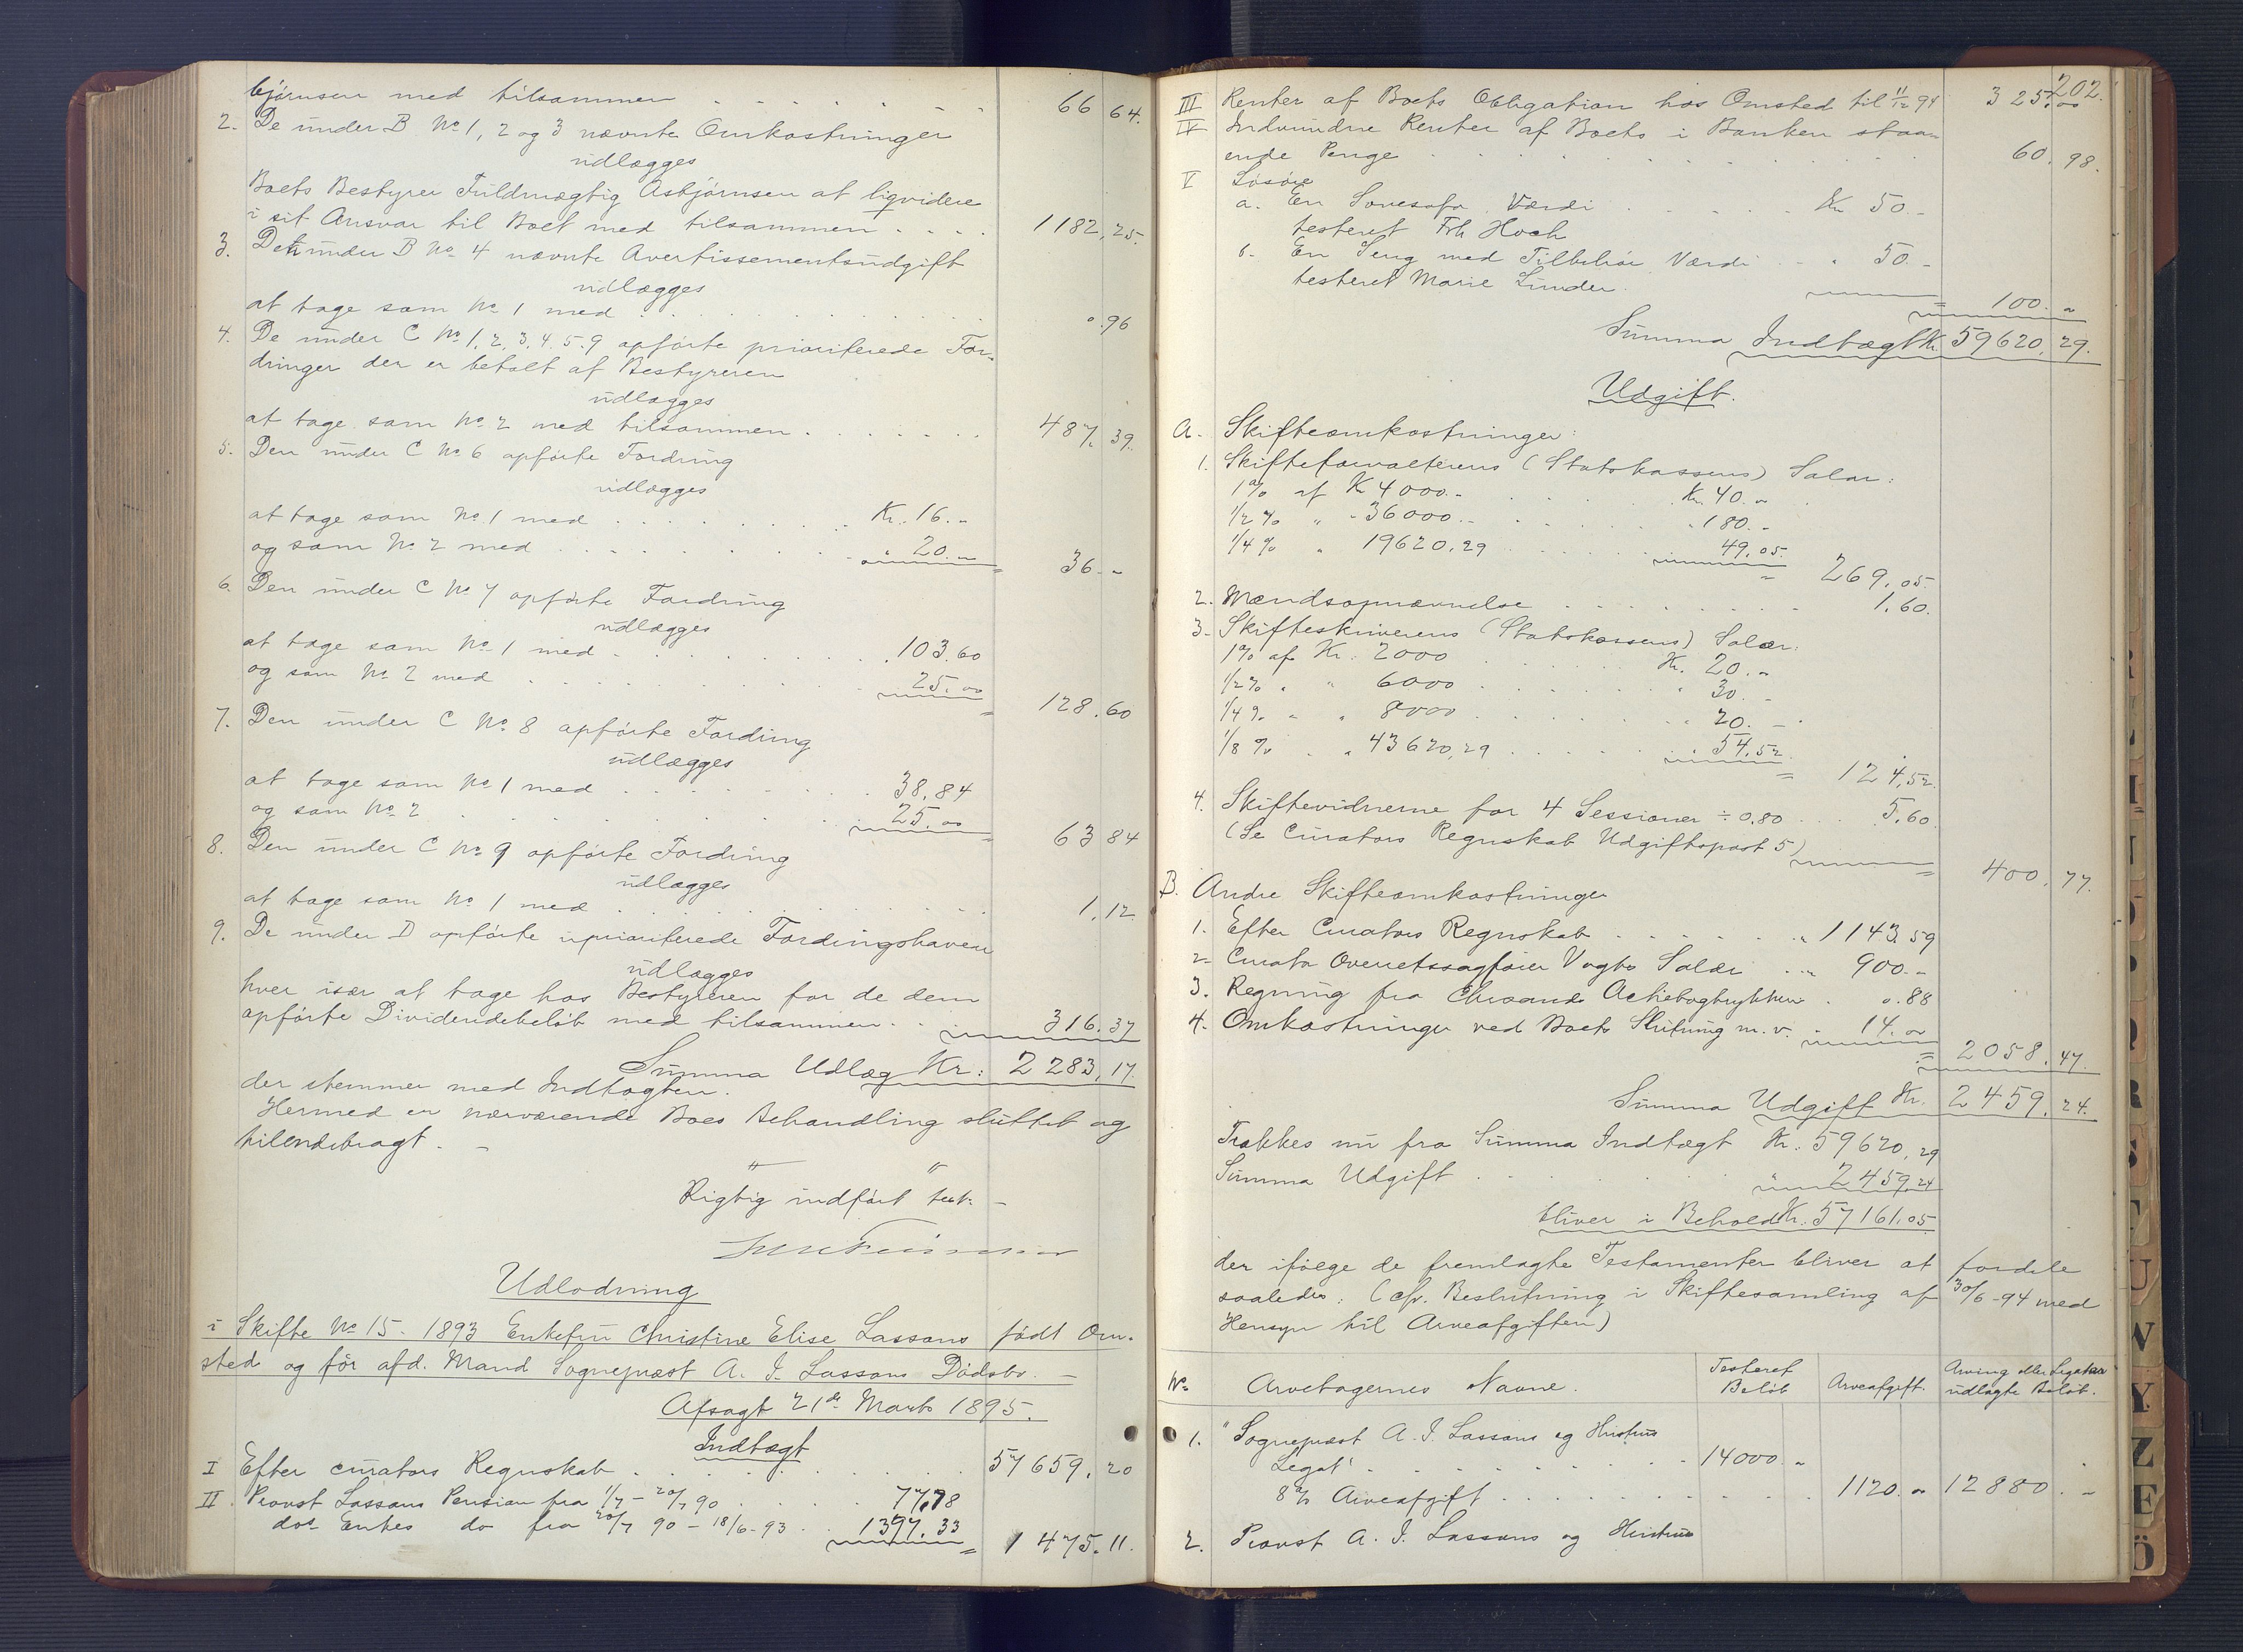 bjørnsen med tilsammen . . . . . . . 66 64.
2. De under B No 1, 2 og 3 nævnte Omkostninger
udlægges
Boets Bestyrer Fuldmægtig Asbjørnsen at liqvidere
i sit Ansvar til Boet med tilsammen . . . . 1182, 25.
3. Den under B No 4 nævnte Avertissementsudgift
udlægges
at tage som No 1 med . . . . . . . . . . . 0.96
4. De under C No 1, 2, 3, 4, 5, 9 opførte prioriterede For-
dringer der er betalt af Bestyreren
udlægges
at tage som No 2 med tilsammen . . . . . . . 487. 39.
5. Den under C No 6 opførte Fordring
udlægges
at tage som No 1 med . . . . . . . . Kr. 16. -
og som No 2 med . . . . . . . . . " 20. - = 36. -
6. Den under C No 7 opførte Fordring
udlægges
at tage som No 1 med . . . . . . . . 103.60
og som No 2 med . . . . . . . . . 25.00 = 128.60
7. Den under C No 8 opførte Fordring
udlægges
at tage som No 1 med . . . . . . . 38,84
og som No 2 . . . . . . . . . . 25.00 = 63 84
8. Den under C No 9 opførte Fordring
udlægges
at tage som No 1 med . . . . . . . . . . . 1,12
9. De under D opførte uprioriterede Fordringshavere
udlægges
hver især at tage hos Bestyreren for de dem
opførte Dividendebeløb med tilsammen . . . 316.37
Summa Udlæg Kr: 2 283,17.
der stemmer med Indtægten.
Hermed er nærværende Boes Behandling sluttet og
tilendebragt. -
" "
Rigtig indført test. -
Udlodning
i Skifte No 15 - 1893 Enkefru Christine Elise Lassons født Om-
sted og før afd. Mand Sognepræst A. I. Lassons Dødsbo. -
Afsagt 21de Marts 1895.
Indtægt
I Efter curators Regnskab . . . . . . . . . . 57 659. 20
II. Provst Lassons Pension fra 1/7 - 20/7 90 . . . . . 77.78
dos Enkes do fra 20/7 90 - 18/6 - 93 . . 1397.33 = 1 475. 11.
202.
III Renter af Boets Obligation hos Omsted til 11/12 94 325. 00
IV Indvundne Renter af Boets i Banken staa-
ende Penge . . . . . . . . . . . . . 60. 98.
V Løsøre
a. En Sovesofa. Værdi . . . . . Kr 50. -
testeret Frk Hoch
b. En Seng med Tilbehør Værdi . - " 50. -
testeret Marie Linder. = 100. -
Summa Indtægt Kr. 59620, 29.
Udgift.
A. Skifteomkostninger:
1. Skifteforvalterens (Statskassens) Salær:
1% af Kr 4000. - . . . . Kr. 40. -
1/2 % " - 36000. - . . . . " 180. -
1/4 % " 19620,29 . . . . . 49,05. = 269,05.
2. Mændsopnævnelse . . . . . . . . . 1.60.
3. Skifteskriverens (Statskassens) Salær:
1% af Kr. 2000 . . . . . Kr. 20. -
1/2 % " " 6000 . . . . . . " 30. -
1/4 % " " 8000 . . . . . . " 20. -
1/8 % . " 43620,29 . . . . . . " 54,52. = 124,52.
4. Skiftevidnerne for 4 Sessioner ÷ 0,80 . . . 5,60.
(Se Curators Regnskab Udgiftspost 5) = 400. 77.
B. Andre Skifteomkostninger
1. Efter Curators Regnskab . . . . . . " 1143.59
2. Curator Overretssagfører Vogts Salær . . " 900. -
3. Regning fra Chrsands Actiebogtrykkeri . " 0.88
4. Omkostninger ved Boets Slutning m. v. " 14.00 = 2058. 47.
Summa Udgift Kr. 2 459. 24.
Trækkes nu fra Summa Indtægt Kr. 59620,29
Summa Udgift . . . . . . . . " 2459,24
bliver i Behold Kr. 57161.05
der ifølge de fremlagte Testamenter bliver at fordele
saaledes: (cfr. Beslutning i Skiftesamling af 30/6 - 94 med
Hensyn til Arveafgiften)
No Arvetagernes Navne. Testeret Beløb Arveafgift. Arving eller Legatar udlagte Beløb.
1. "Sognepræst A. I. Lassons og Hustrus
Legat" . . . . . . . . . . . 14000. -
8% Arveafgift . . . . . . . . . . . 1120. - 12880. -
2. Provst A. I. Lassons og Hustrus